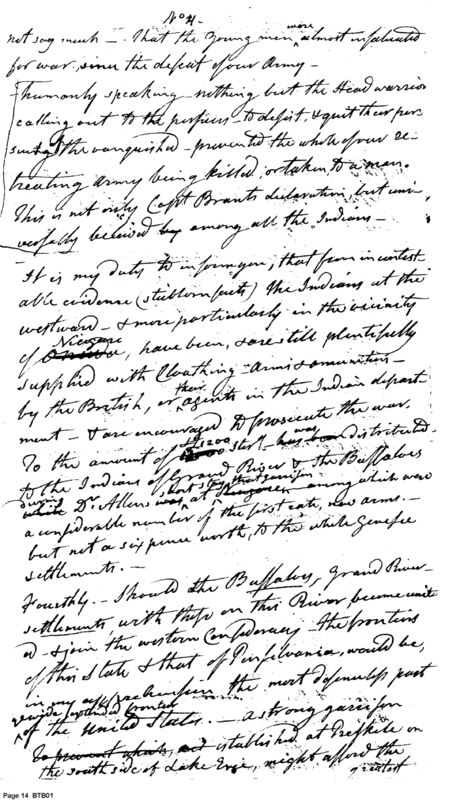 No 4.
not say much - . That the young men were almost infatuated
for war, since the defeat of our Army -
humanly speaking nothing but the Head warrior
calling out to the persuers to desist, & quit their per
suing the vanquished - prevented the whole of our re-
treating Army being killed, or taken to a man.
This is not only Capt Brants declaration, but uni
versally believed by among all the Indians -
It is my duty to inform you, that from incontest
able evidence (stubborn facts) the Indians at the
westward - & more particularly in the vicinity
of Niegare, have been, & are still plentifully
supplied with Cloathing - Arms & amunition -
by the British, or their agents in the Indian depart-
ment - & are encouraged to prosecute the war.
To the amount of £1200 Sterg was distributed
to the Indians of Grand River & the Buffaloes
during Dr Allens short stay at that garrison among which were
a considerable number of the first rate, new arms. -
but not a six pence worth, to the while Genesee
settlements. -
Fourthly. - Should the Buffaloes, Grand River
settlements, with those on this River, become unite
ed & join the western Confederacy - the frontiers
of this State & that of Pensilvania, would be,
in my apprehension the most defenseless part
extended frontier
of the United States. - a strong garrison
to prevent which, established at Preskile on
the south side of Lake Erie, might afford the
greatest
Page 14 BTB01